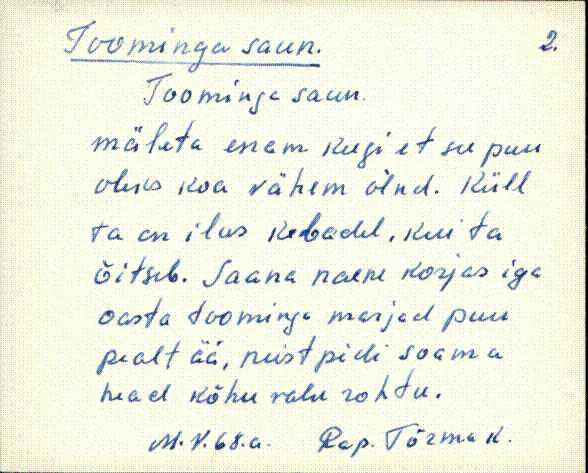 Toominga saun. 2.
Toominga saun.
mäleta enam kegi et su puu
oleks koa vähem õlnd. Küll
ta on ilus kebadel, kui ta
õitseb. Saana naene korjas iga
oasta toominga marjad puu
pealt ää, neist pidi soama
head kõhu valu rohtu.
M.V.68.a. Rap. Tõrma k.